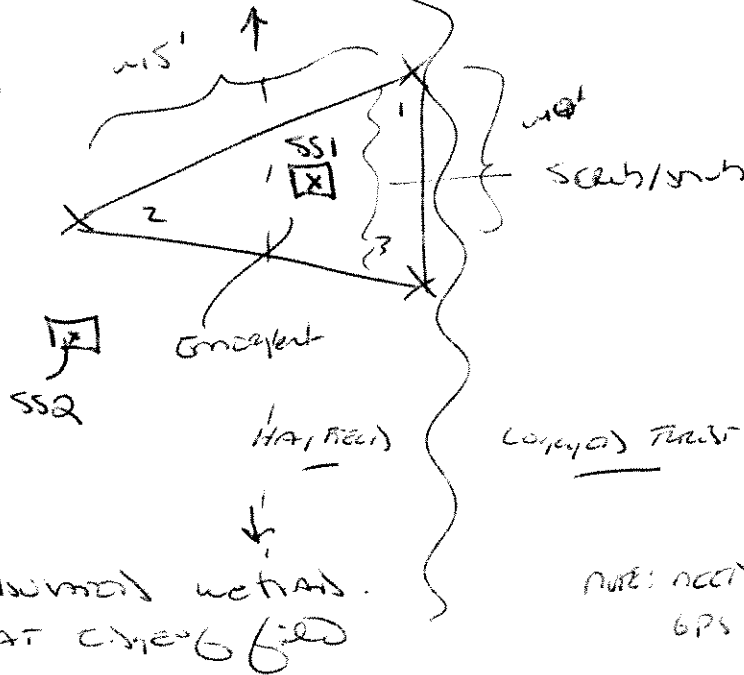 ~15'
1
SS1
x
~10'
Scrub/shrub
2
3
Emergent
x
SS2
HAYFIELD
LOGGED FOREST
ISOLATED wetland.
AT EDGE OF field
NOTE: NEED
GPS